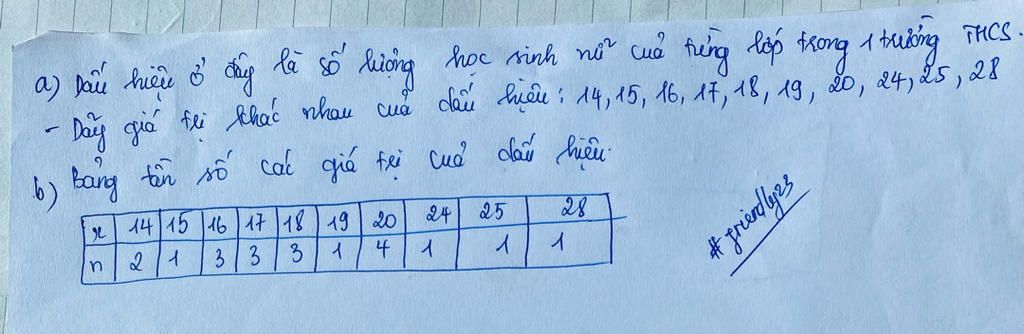 a) Dấu hiệu ở đây là số lượng học sinh nữ cuả từng lớp trong 1 trường THCS.
- Dãy giá trị khác nhau cuả dấu hiệu: 14, 15, 16, 17, 18, 19, 20, 24, 25, 28
b) Bảng tần số các giá trị cuả dấu hiệu.
x 14 15 16 17 18 19 20 24 25 28
n 2 1 3 3 3 1 4 1 1 1
#friendly23